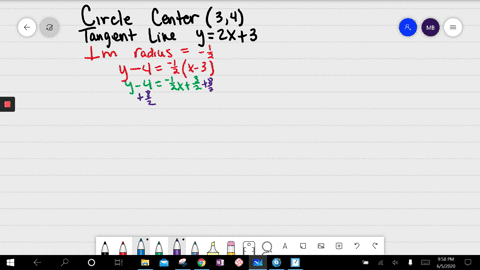 Circle Center (3,4)
Tangent Line y=2x+3
⊥m radius = -1/2
y-4 = -1/2(x-3)
y-4 = -1/2x+3/2+8/2
+8/2
MB
9:58 PM
6/5/2020